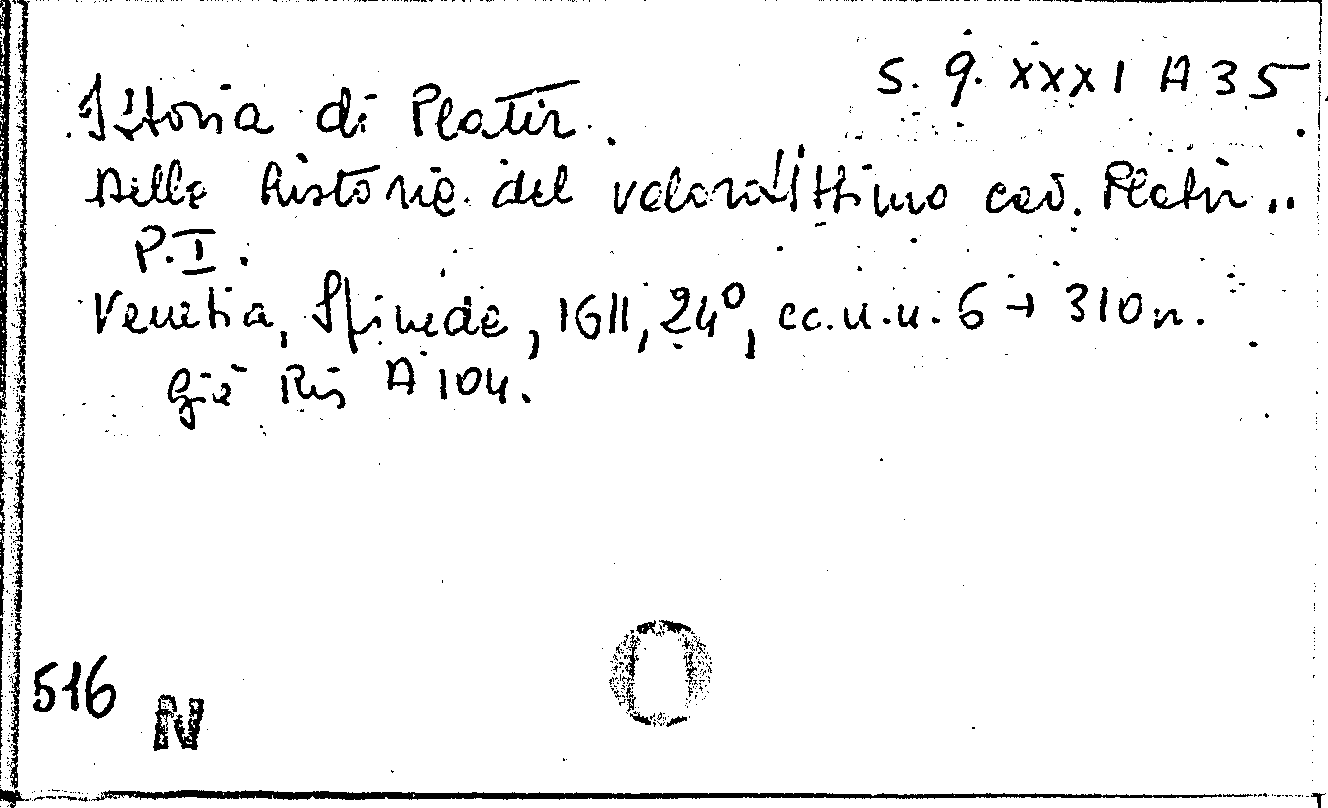 S. q. XXXI A 35
Istoria di Platir.
Delle historie del valorosissimo cav. Platir..
P.I.
Venetia, Spineda, 1611, 24°, cc.n.n. 6 + 310 n.
già Ris A 104.
516 N